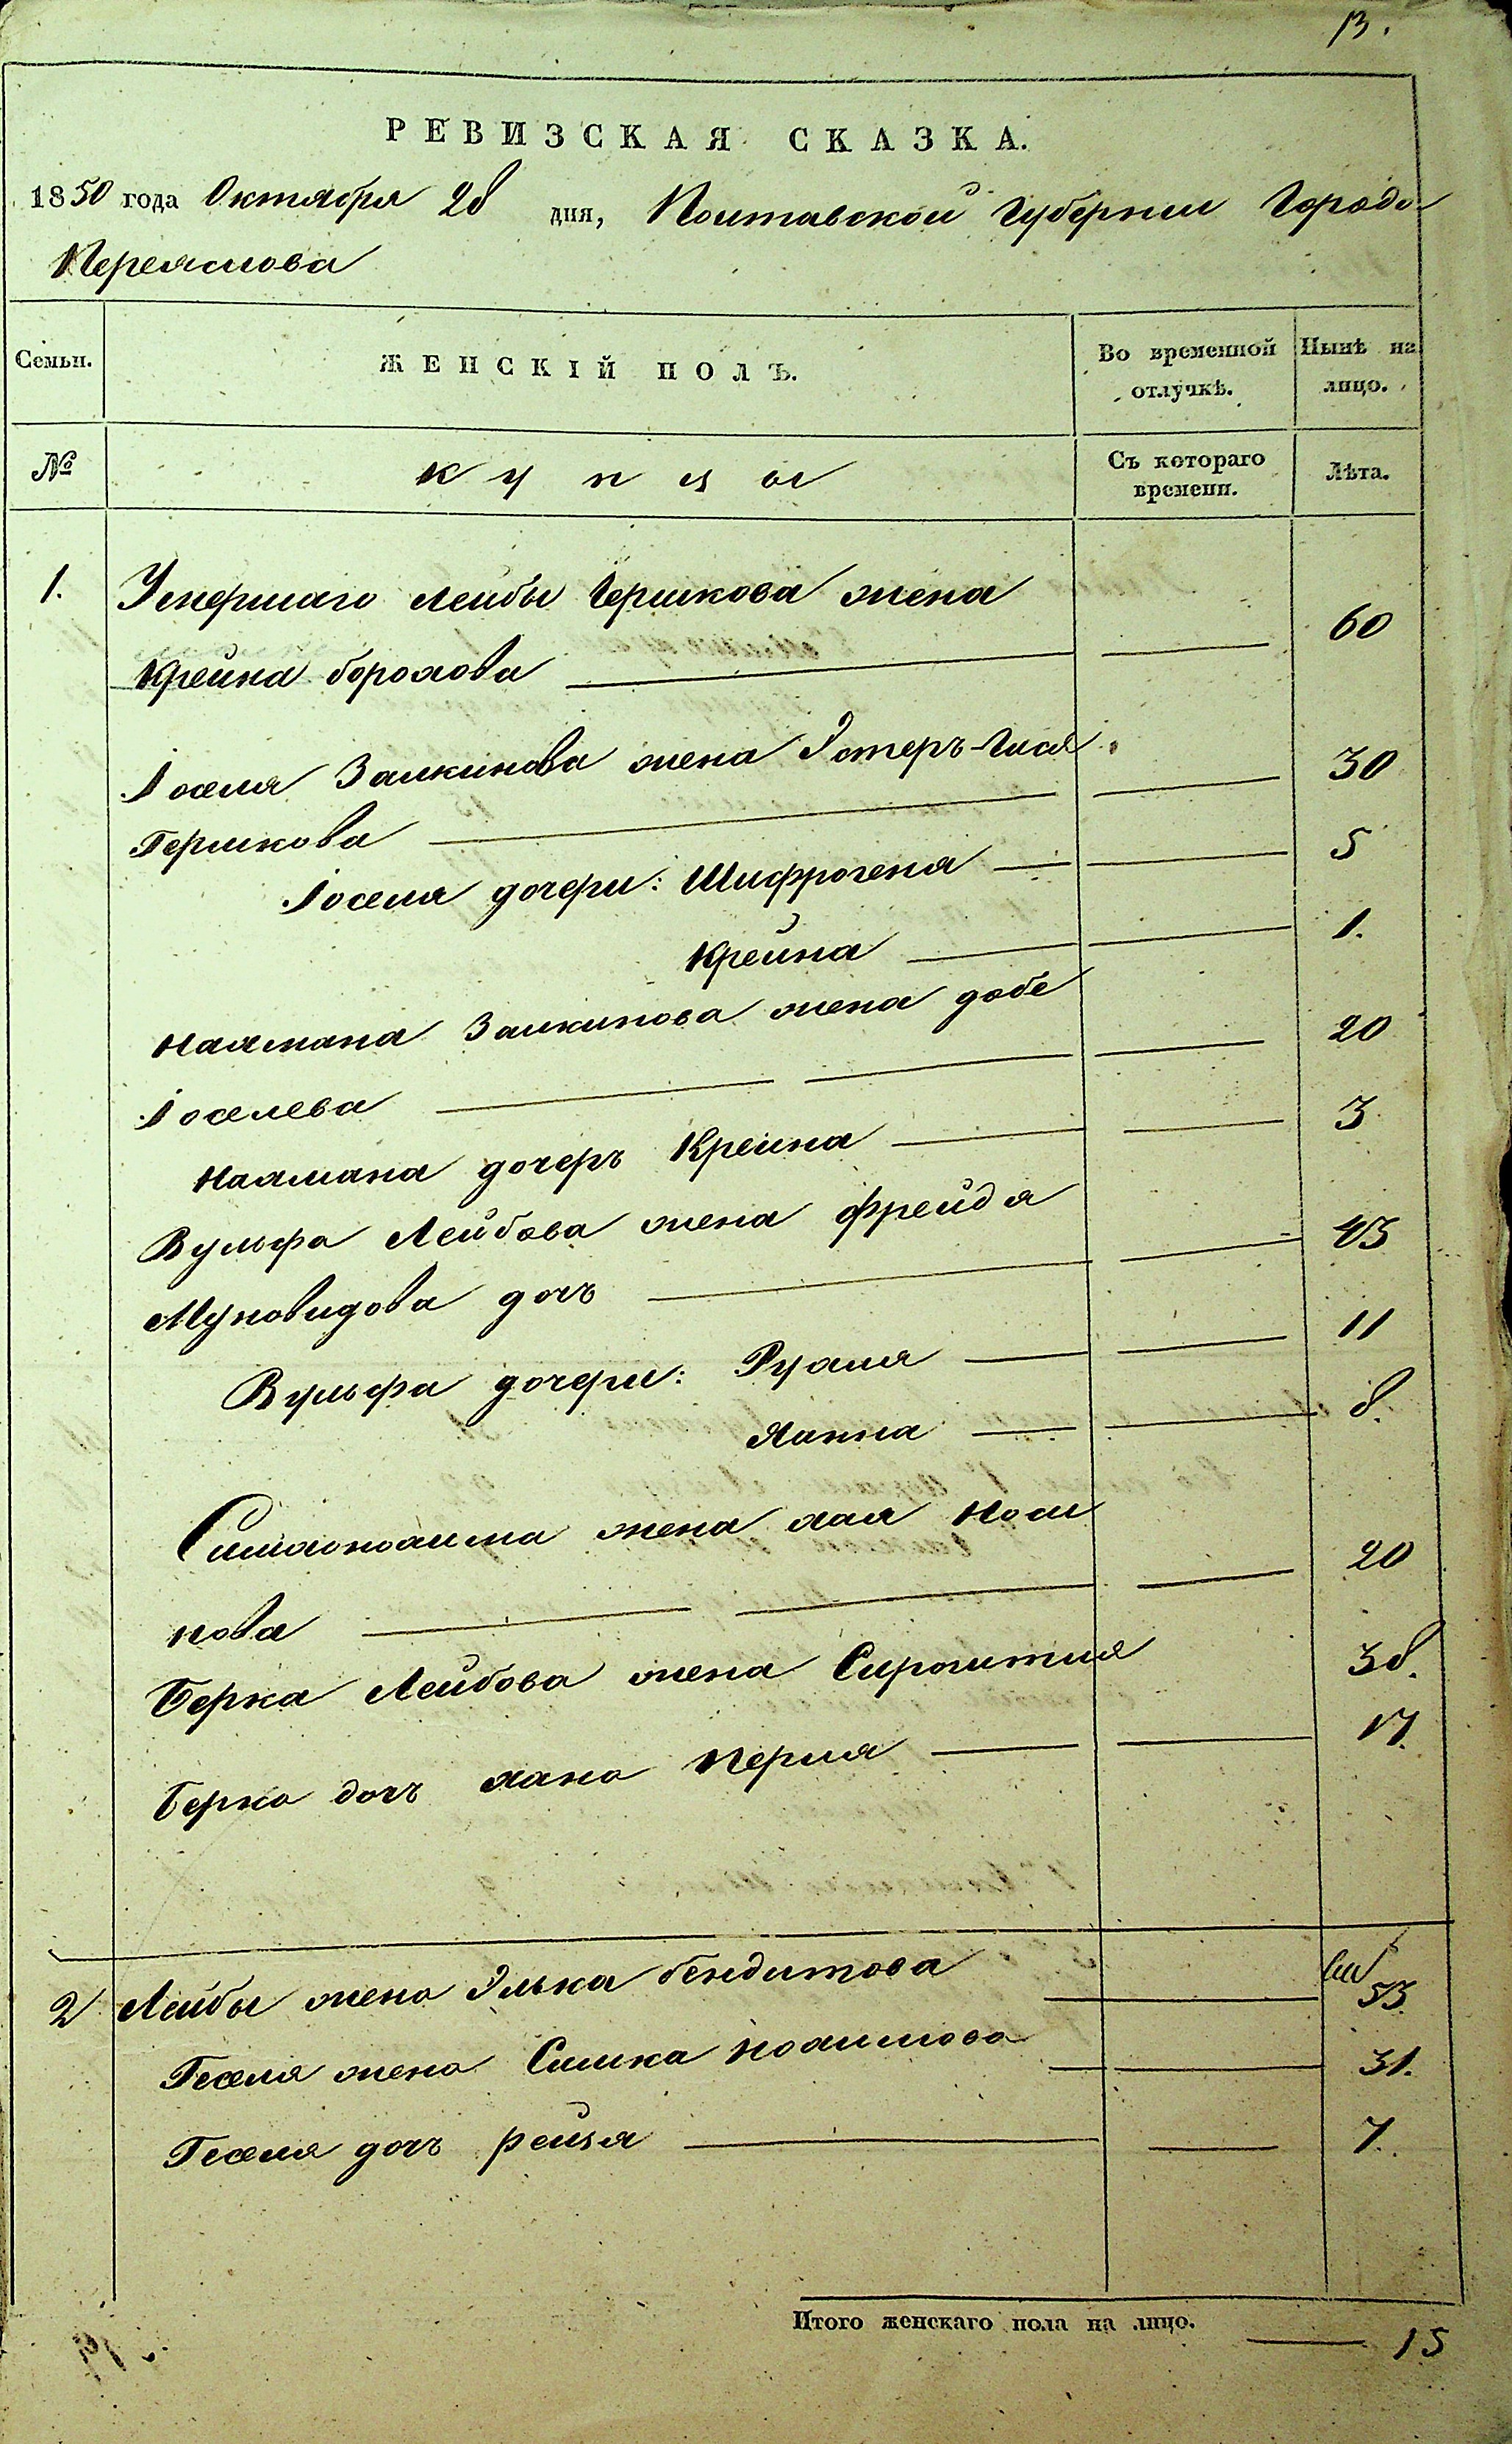 13.
РЕВИЗСКАЯ СКАЗКА.
1850 года Октября 28 дня, Полтавской Губернии Города
Переяслова
Семьи.
ЖЕНСКІЙ ПОЛЪ.
Во временной отлучкѣ.
Нынѣ на лицо.
№
купцы
Съ котораго времени.
Лѣта.
1. Умершаго Лейбы Гершкова жена
Крейна борохова 60
Іоселя Залкинова жена Эстеръ-Гися
Гершкова 30
Іоселя дочери: Шифрогеня 5
Крейна 1.
Калмана Залкинова жена добе
Іоселева 20
Калмана дочеръ Крейна 3
Вульфа Лейбова жена фрейдя
Муновидова дочъ 43
Вульфа дочери: Рухля 11
Ханна 8.
жена хая Носи
нова 20
Берка Лейбова жена 38.
Берка дочъ хана Перля 17.
2 Лейбы жена Элька бендитова 53
Геселя жена Симка 31.
Геселя дочъ рейзя 7.
Итого женскаго пола на лицо. 15